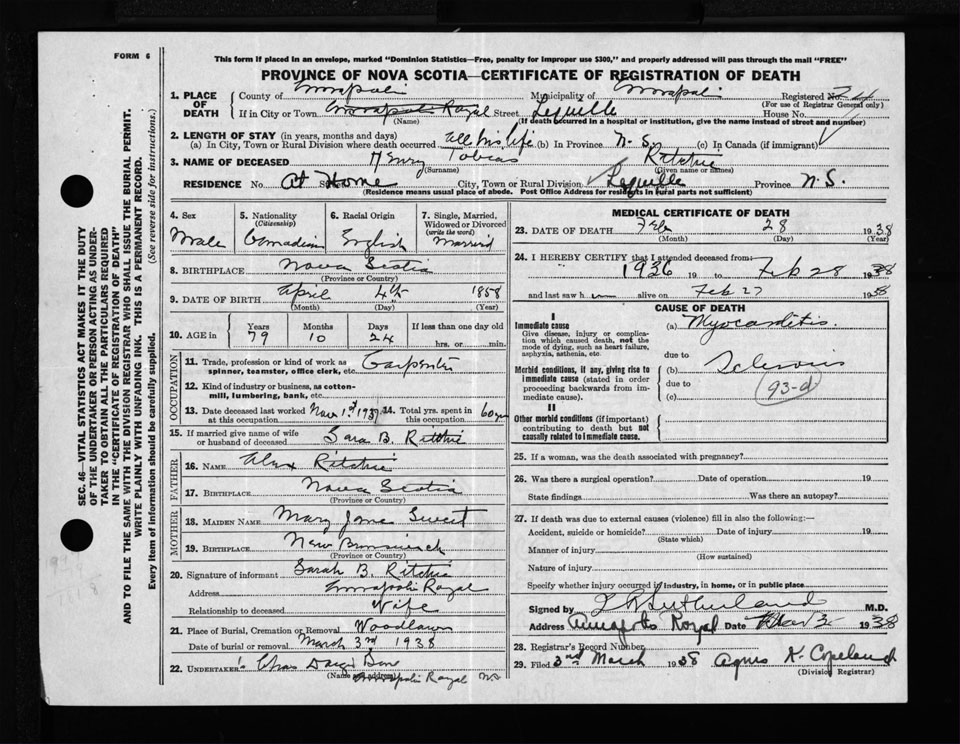 FORM 6
This form if placed in an envelope, marked "Dominion Statistics—Free, penalty for improper use $300," and properly addressed will pass through the mail "FREE"
PROVINCE OF NOVA SCOTIA—CERTIFICATE OF REGISTRATION OF DEATH
SEC. 46—VITAL STATISTICS ACT MAKES IT THE DUTY
OF THE UNDERTAKER OR PERSON ACTING AS UNDER-
TAKER TO OBTAIN ALL THE PARTICULARS REQUIRED
IN THE "CERTIFICATE OF REGISTRATION OF DEATH"
AND TO FILE THE SAME WITH THE DIVISION REGISTRAR WHO SHALL ISSUE THE BURIAL PERMIT.
WRITE PLAINLY WITH UNFADING INK. THIS IS A PERMANENT RECORD.
Every item of information should be carefully supplied. (See reverse side for instructions.)
1. PLACE OF DEATH County of Annapolis Municipality of Annapolis Registered No. 24
(For use of Registrar General only)
If in City or Town Annapolis Royal Street Lequille House No.
(Name) (If death occurred in a hospital or institution, give the name instead of street and number)
2. LENGTH OF STAY (in years, months and days)
(a) In City, Town or Rural Division where death occurred All his life (b) In Province N.S. (c) In Canada (if immigrant)
3. NAME OF DECEASED Henry Tobias Ritchie
(Surname) (Given name or names)
RESIDENCE No. At Home St. City, Town or Rural Division Lequille Province N.S.
(Residence means usual place of abode. Post Office Address for residents in rural parts not sufficient)
4. Sex Male
5. Nationality (Citizenship) Canadian
6. Racial Origin English
7. Single, Married, Widowed or Divorced (write the word) Married
8. BIRTHPLACE Nova Scotia
(Province or Country)
9. DATE OF BIRTH April 4th 1858
(Month) (Day) (Year)
10. AGE in Years 79 Months 10 Days 24 If less than one day old hrs. or min.
OCCUPATION
11. Trade, profession or kind of work as spinner, teamster, office clerk, etc. Carpenter
12. Kind of industry or business, as cotton-mill, lumbering, bank, etc.
13. Date deceased last worked at this occupation Nov 1st 1937 14. Total yrs. spent in this occupation 60 yrs
15. If married give name of wife or husband of deceased Sara B. Ritchie
FATHER
16. NAME Alex Ritchie
17. BIRTHPLACE Nova Scotia
(Province or Country)
MOTHER
18. MAIDEN NAME Mary Jane Sweet
19. BIRTHPLACE New Brunswick
(Province or Country)
20. Signature of informant Sarah B. Ritchie
Address Annapolis Royal
Relationship to deceased Wife
21. Place of Burial, Cremation or Removal Woodlawn
Date of burial or removal March 3rd 1938
22. UNDERTAKER Chas
(Name and address) Annapolis Royal N.S.
MEDICAL CERTIFICATE OF DEATH
23. DATE OF DEATH Feb 28 1938
(Month) (Day) (Year)
24. I HEREBY CERTIFY that I attended deceased from:
1936 19 to Feb 28 1938
and last saw him alive on Feb 27 1938
CAUSE OF DEATH
I
Immediate cause
Give disease, injury or complication which caused death, not the mode of dying, such as heart failure, asphyxia, asthenia, etc.
(a) Myocarditis.
due to
Morbid conditions, if any, giving rise to immediate cause (stated in order proceeding backwards from immediate cause).
Sclerosis
due to 93-d
(c)
II
Other morbid conditions (if important) contributing to death but not causally related to immediate cause.
25. If a woman, was the death associated with pregnancy?
26. Was there a surgical operation? Date of operation 19
State findings Was there an autopsy?
27. If death was due to external causes (violence) fill in also the following:—
Accident, suicide or homicide? Date of injury 19
(State which)
Manner of injury
(How sustained)
Nature of injury
Specify whether injury occurred in industry, in home, or in public place
Signed by Sutherland M.D.
Address Annapolis Royal Date Mar 2 1938
28. Registrar's Record Number
29. Filed 3rd March 1938 Agnes K. Copeland
(Division Registrar)